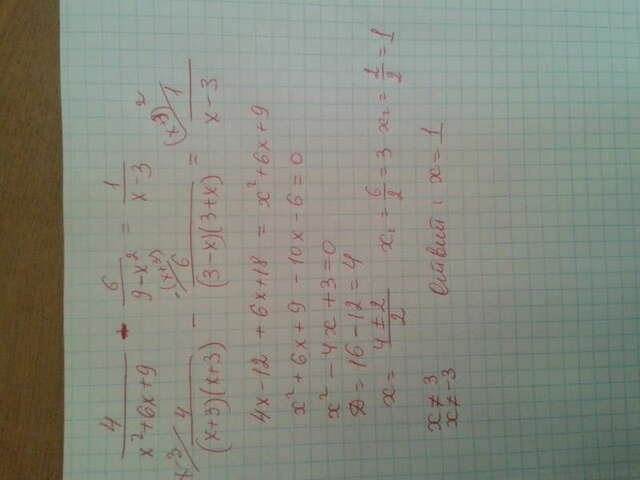 4/(x²+6x+9) - 6/(9-x²) = 1/(x-3)
x-3/ 4/((x+3)(x+3)) - (x+3)/ 6/((3-x)(3+x)) = (x+3)²/ 1/(x-3)
4x-12 + 6x+18 = x²+6x+9
x²+6x+9 -10x-6=0
x²-4x+3=0
D=16-12=4
x= (4±2)/2 x₁=6/2=3 x₂=2/2=1
x≠3
x≠-3
Ответ: x=1